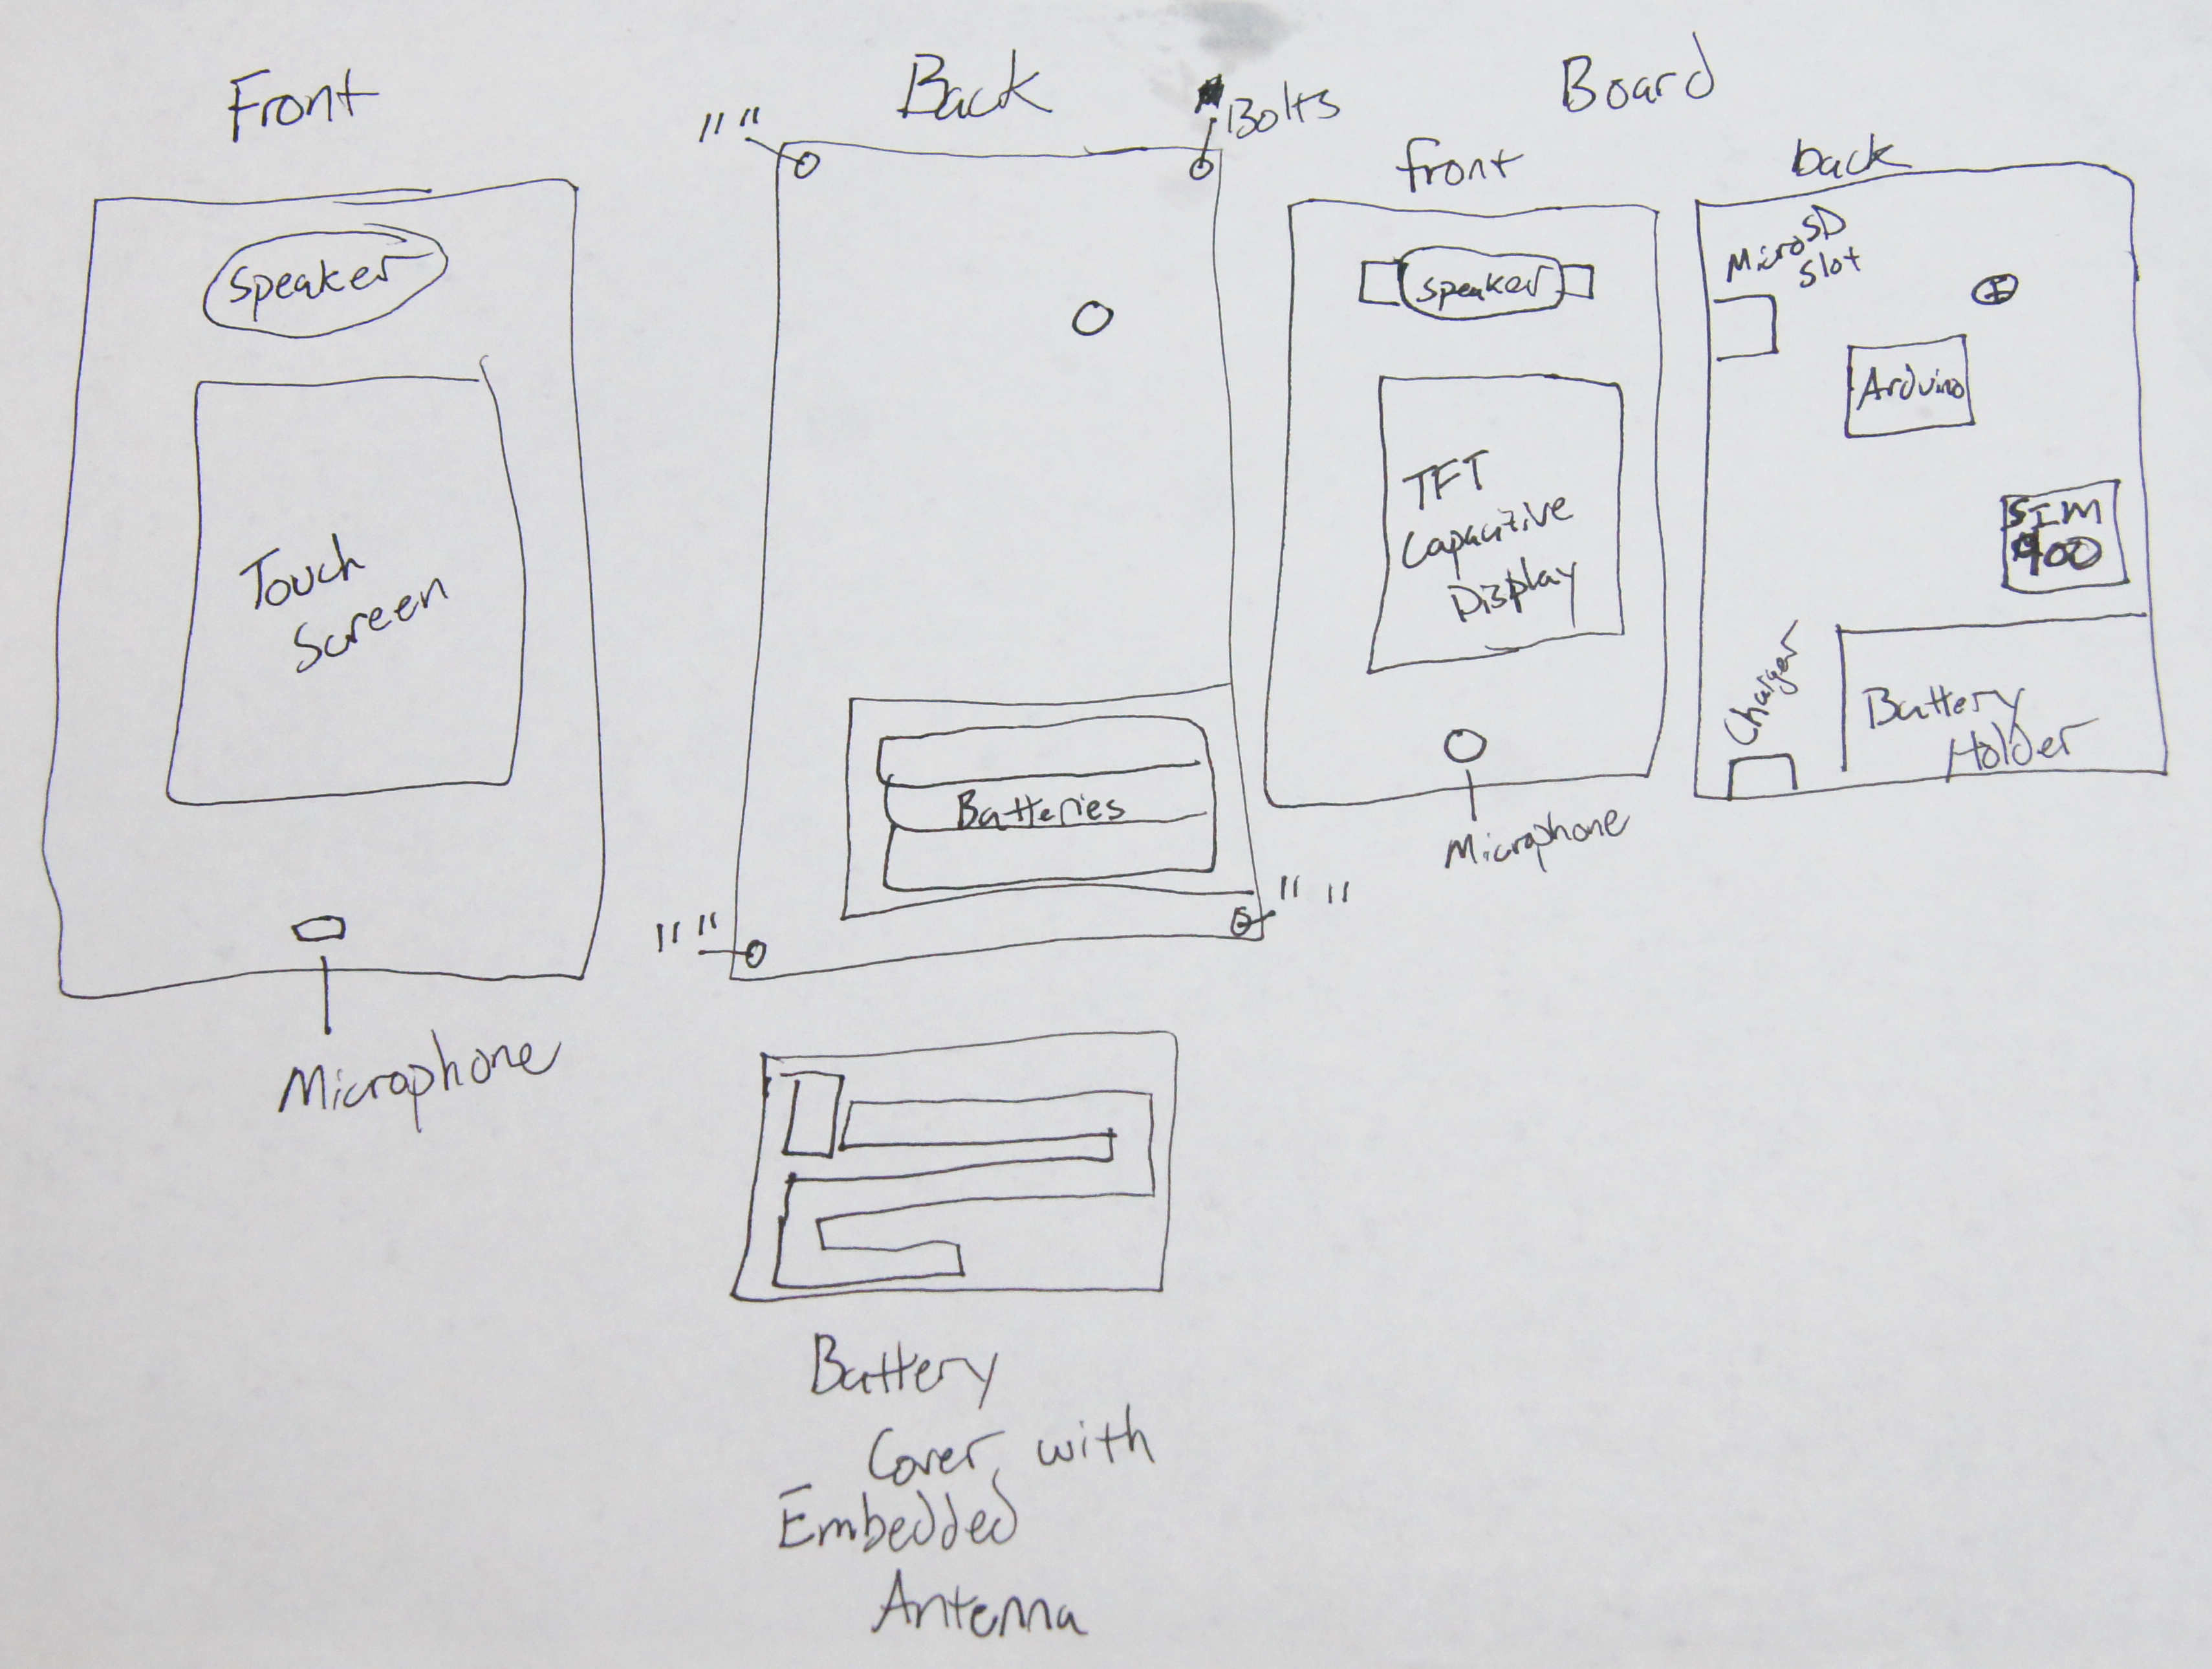 Front
Speaker
Touch
Screen
Microphone
Back
" "
Bolts
Batteries
" "
" "
Battery
Cover with
Embedded
Antenna
Board
front
Speaker
TFT
Capacitive
Display
Microphone
back
MicroSD
Slot
Arduino
SIM
900
Charger
Battery
Holder